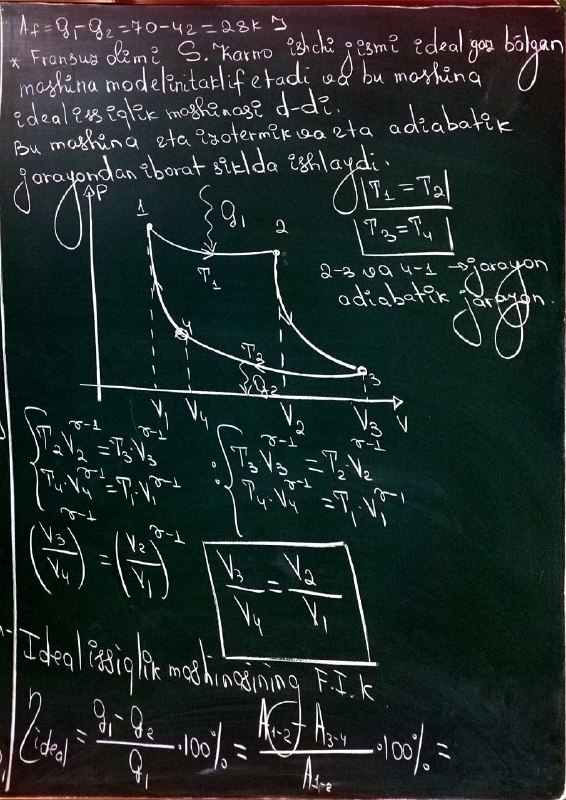 A_f = q₁ - q₂ = 70 - 42 = 28 kJ
* Fransuz olimi S. Karno ishchi jismi ideal gaz bo'lgan
mashina modelini taklif etadi va bu mashina
ideal issiqlik mashinasi d-di.
Bu mashina 2ta izotermik va 2ta adiabatik
jarayondan iborat siklda ishlaydi.
T₁ = T₂
T₃ = T₄
2-3 va 4-1 → jarayon
adiabatik jarayon.
P
1
q₁
2
T₁
4
T₂
3
V₁ V₄ V₂ V₃ V
T₂·V₂^(γ-1) = T₃·V₃^(γ-1)
T₄·V₄^(γ-1) = T₁·V₁^(γ-1)
: T₃V₃^(γ-1) = T₂·V₂^(γ-1)
T₄·V₄^(γ-1) = T₁·V₁^(γ-1)
(V₃/V₄)^(γ-1) = (V₂/V₁)^(γ-1)
V₃/V₄ = V₂/V₁
Ideal issiqlik mashinasining F.I.K
η_ideal = (q₁ - q₂)/q₁ · 100% = (A₁₋₂ - A₃₋₄)/A₁₋₂ · 100% =